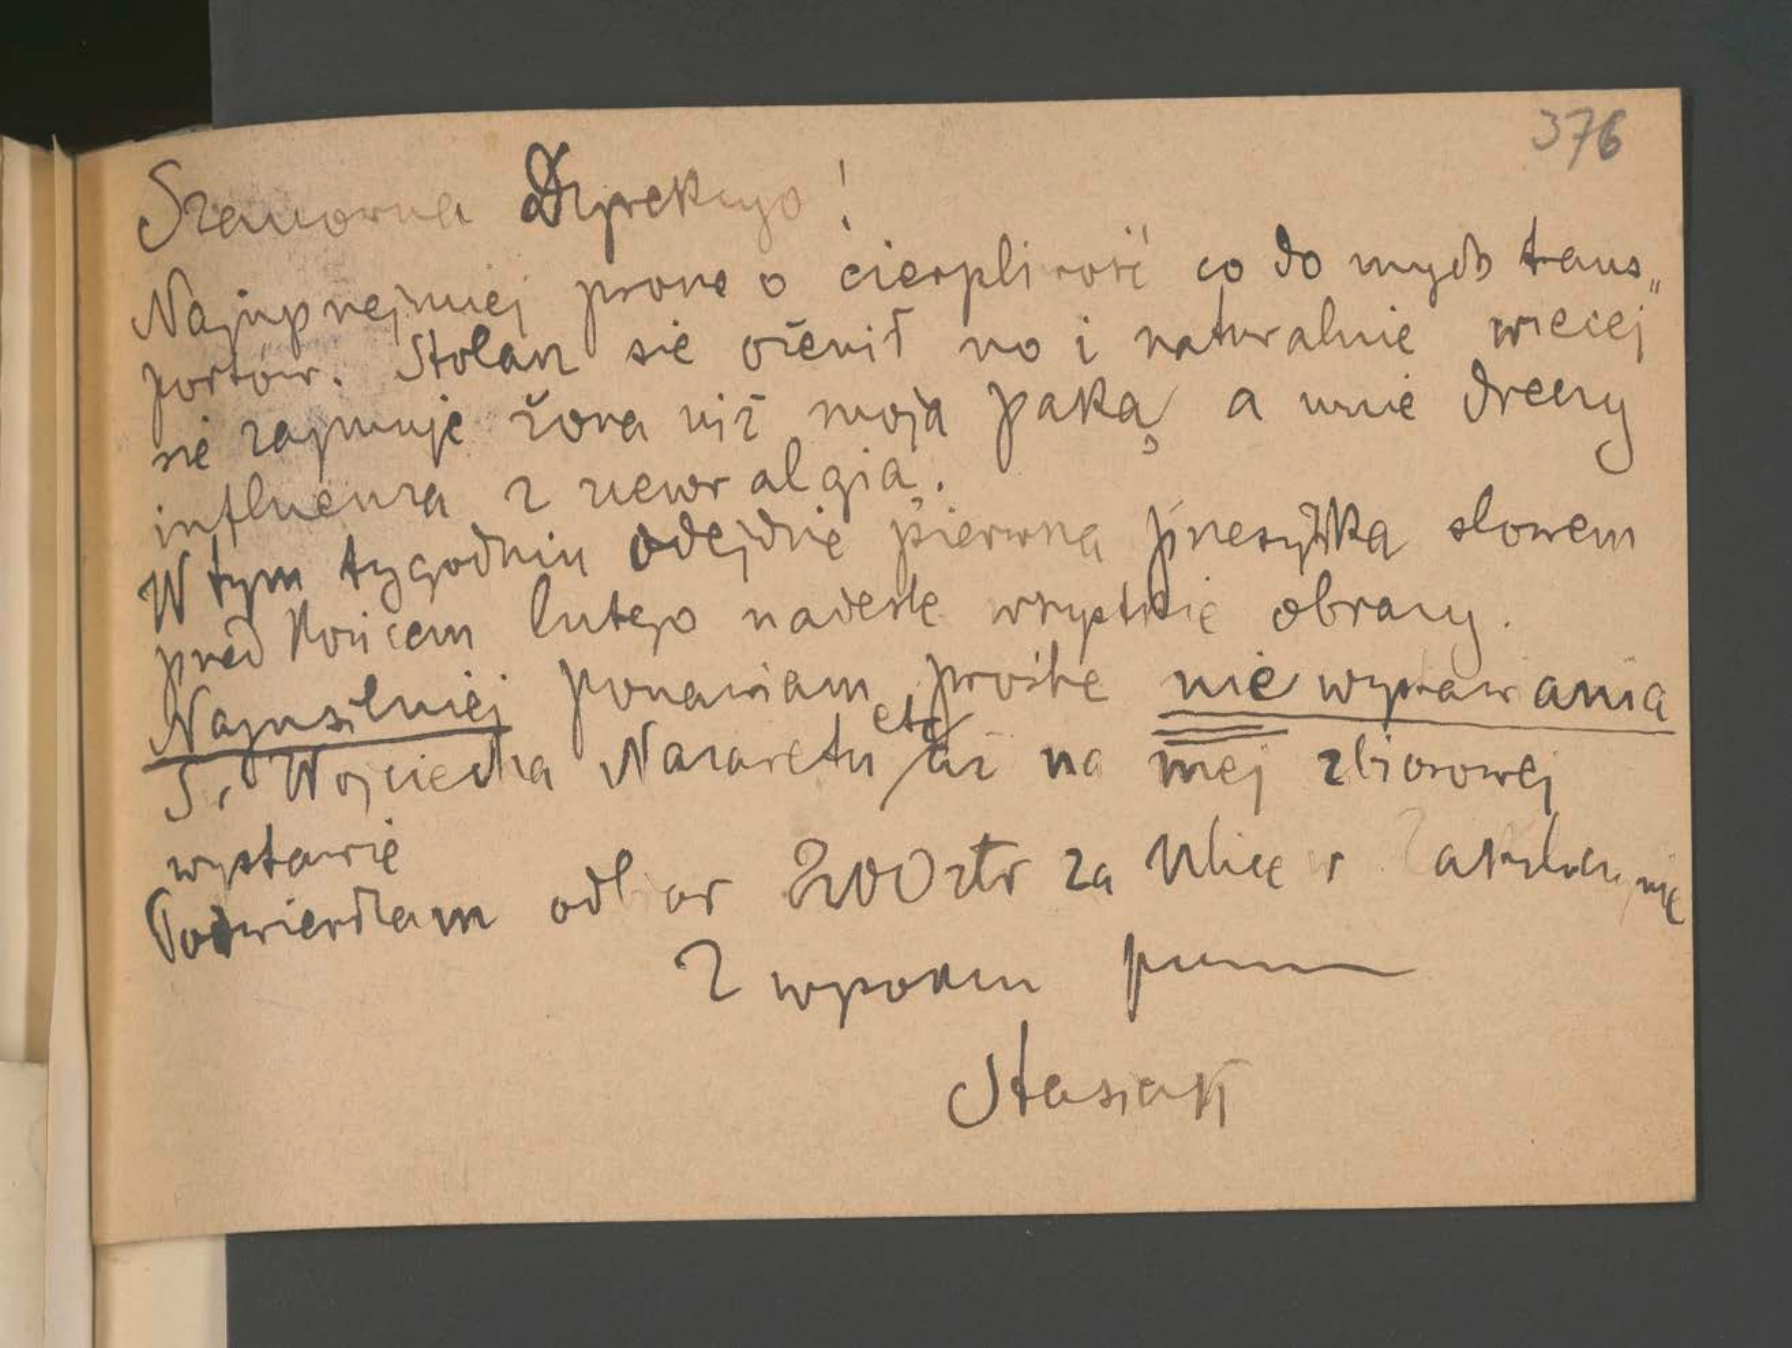 376
Szanowna Dyrekcyo!
Najuprzejmiej proszę o cierpliwość co do mych trans„
portów. Stolarz się ożenił no i naturalnie więcej
się zajmuje żoną niż moją paką, a mnie dręczy
influenza z newralgią.
W tym tygodniu odejdzie pierwsza przesyłka słowem
przed końcem lutego nadeślę wszystkie obrazy.
Najusilniej ponawiam prośbę nie wystawiania
S. Wojciecha Nazaretu etc aż na mej zbiorowej
wystawie
Potwierdzam odbior 200 złr za Ulicę w
Z
Stasiak